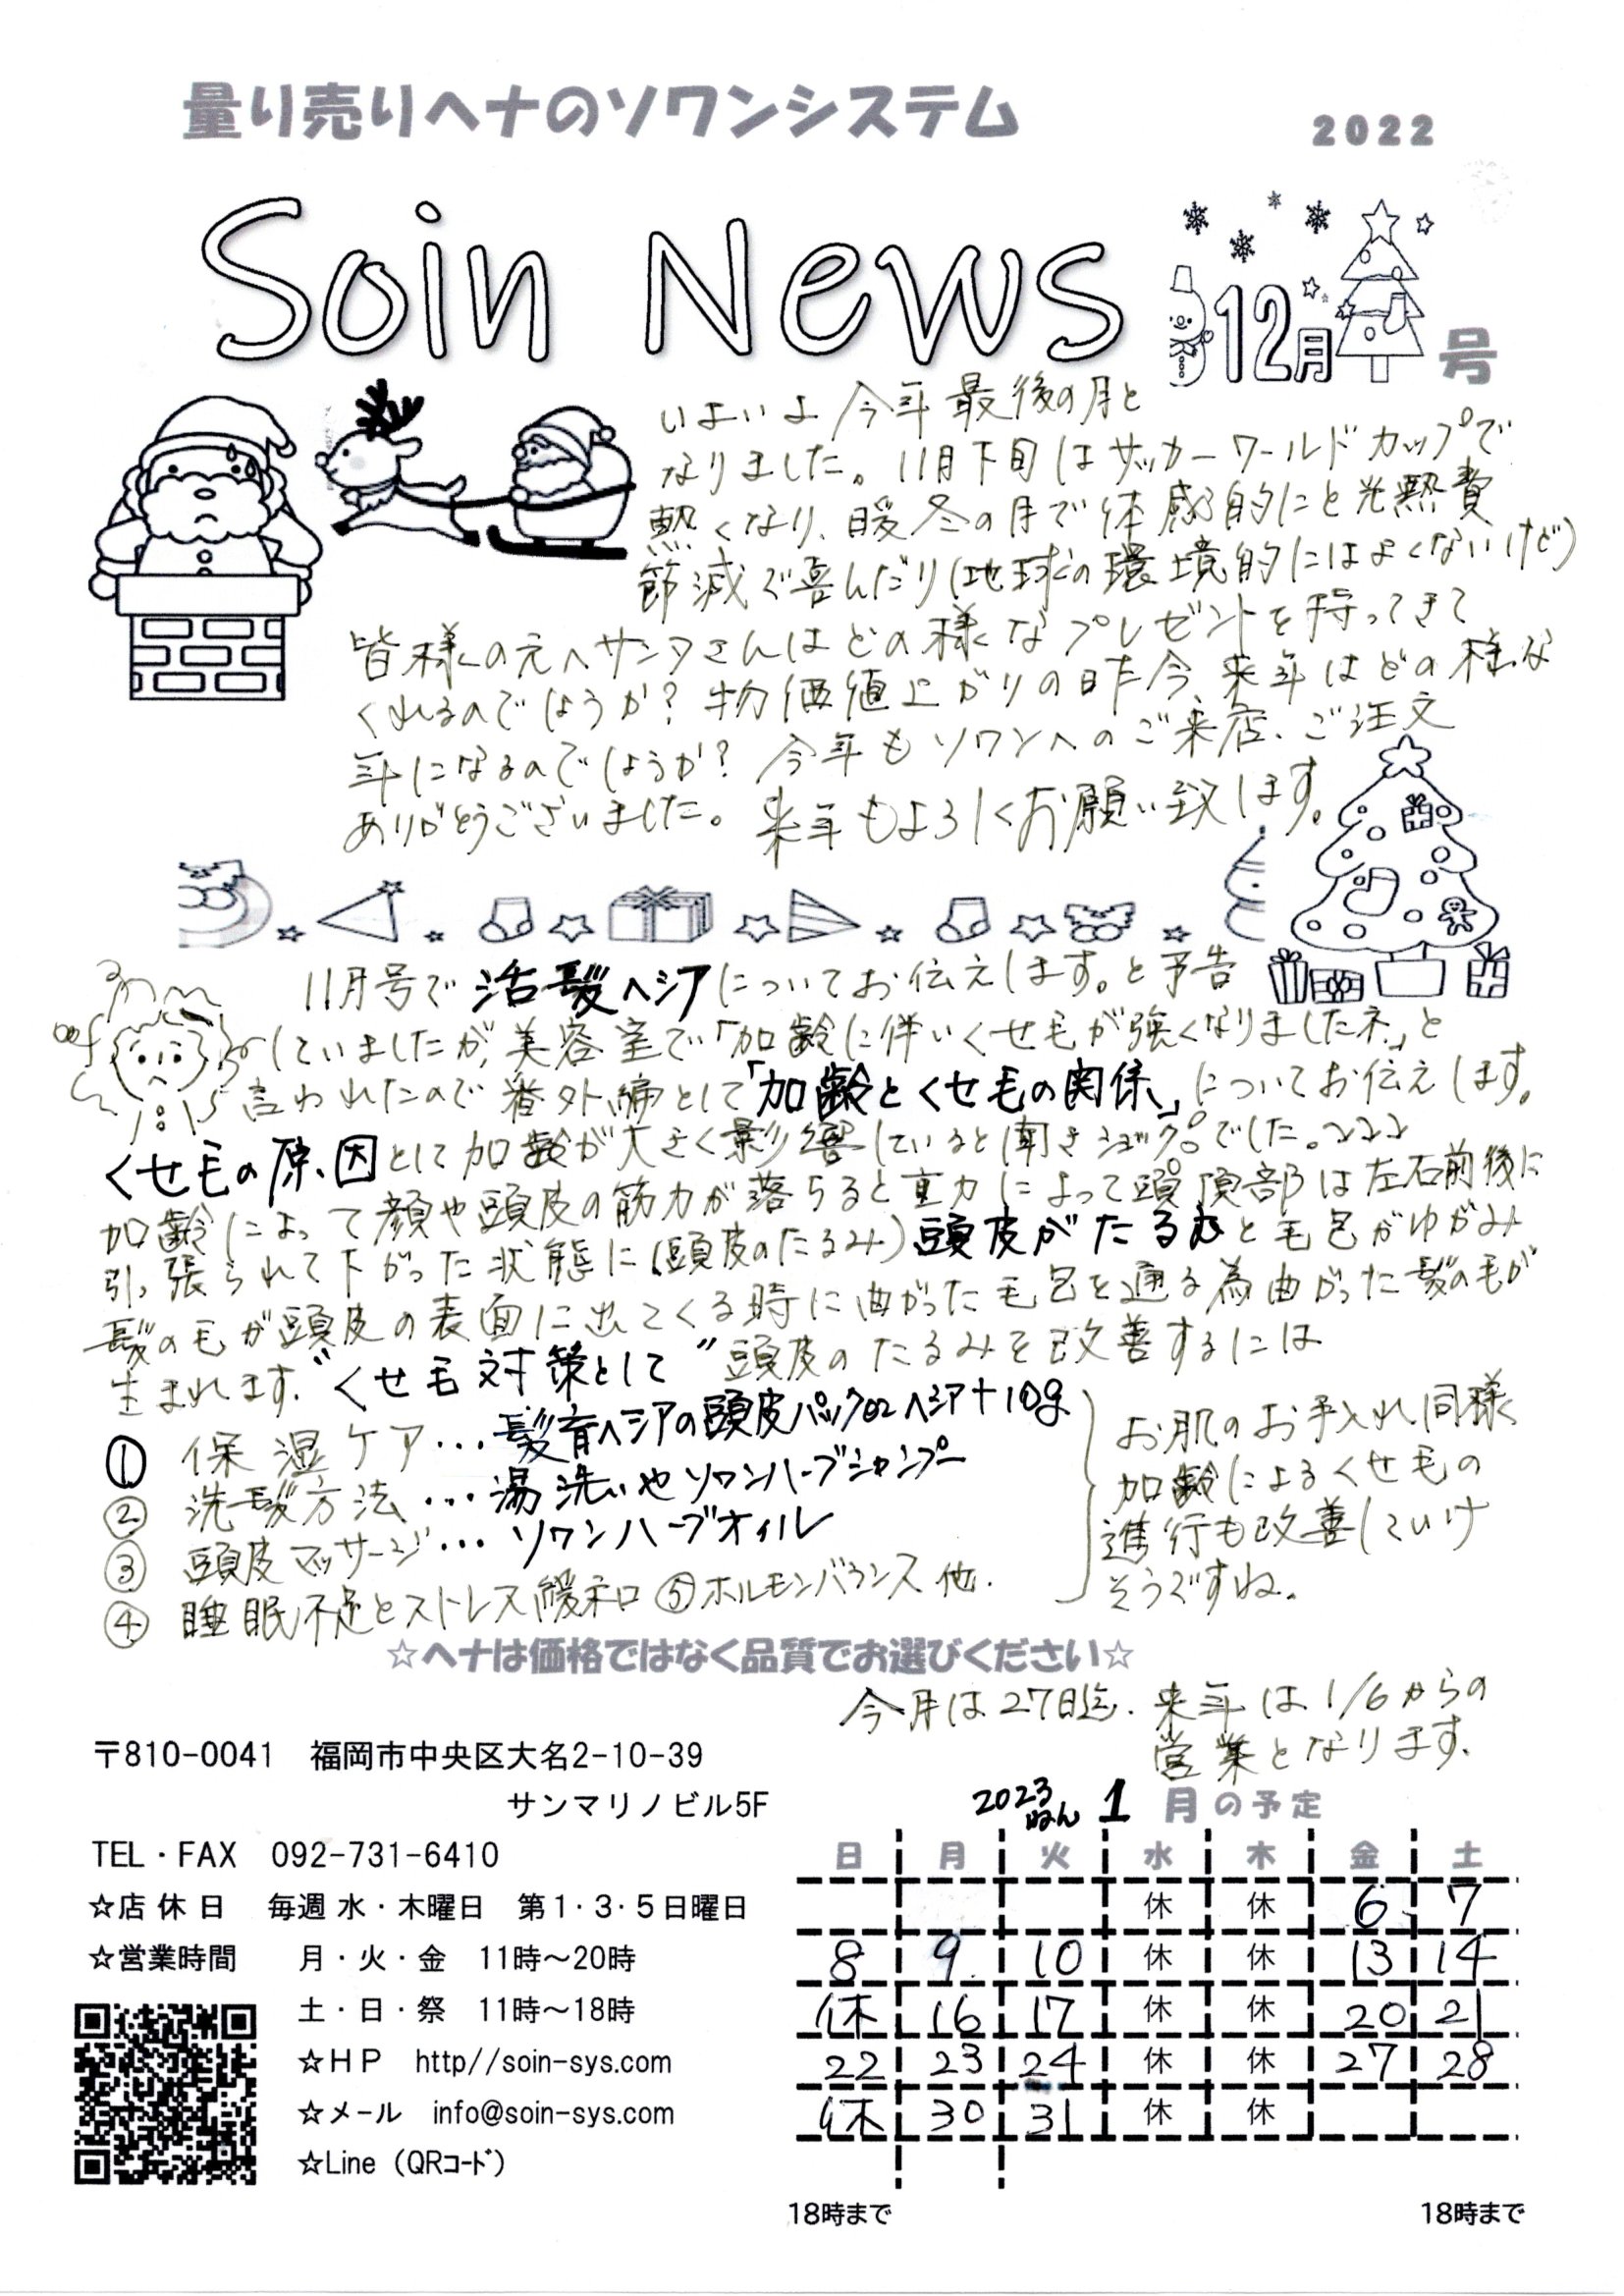 量り売りヘナのソワンシステム
2022
Soin News
12月
号
いよいよ今年最後の月と
なりました。11月下旬はサッカーワールドカップで
熱くなり、暖冬の月で体感的にと光熱費
節減で喜んだり(地球の環境的にはよくないけど)
皆様の元へサンタさんはどの様なプレゼントを持ってきて
くれるのでしょうか?物価値上がりの昨今、来年はどの様な
年になるのでしょうか?今年もソワンへのご来店、ご注文
ありがとうございました。来年もよろしくお願い致します。
11月号で活髪ヘシアについてお伝えします。と予告
していましたが、美容室で「加齢に伴いくせ毛が強くなりましたネ」と
言われたので番外編として「加齢とくせ毛の関係」についてお伝えします。
くせ毛の原因として加齢が大きく影響していると聞きショックでした。
加齢によって顔や頭皮の筋力が落ちると重力によって頭頂部は左右前後に
引っ張られて下がった状態に(頭皮のたるみ)頭皮がたるむと毛包がゆがみ
髪の毛が頭皮の表面に出てくる時に曲がった毛包を通る為曲がった髪の毛が
生まれます。"くせ毛対策として"頭皮のたるみを改善するには
① 保湿ケア…髪育ヘシアの頭皮パックorヘシア+10g
② 洗髪方法…湯洗いやソワンハーブシャンプー
③ 頭皮マッサージ…ソワンハーブオイル
④ 睡眠不足とストレス緩和 ⑤ホルモンバランス 他.
お肌のお手入れ同様
加齢によるくせ毛の
進行も改善していけ
そうですね。
☆ヘナは価格ではなく品質でお選びください☆
今月は27日迄. 来年は1/6からの
営業となります.
〒810-0041 福岡市中央区大名2-10-39
サンマリノビル5F
TEL・FAX 092-731-6410
☆店 休 日 毎週 水・木曜日 第1・3・5日曜日
☆営業時間 月・火・金 11時～20時
土・日・祭 11時～18時
☆HP http//soin-sys.com
☆メール info@soin-sys.com
☆Line（QRコード）
2023ねん 1 月の予定
日 月 火 水 木 金 土
休 休 6 7
8 9 10 休 休 13 14
休 16 17 休 休 20 21
22 23 24 休 休 27 28
休 30 31 休 休
18時まで 18時まで